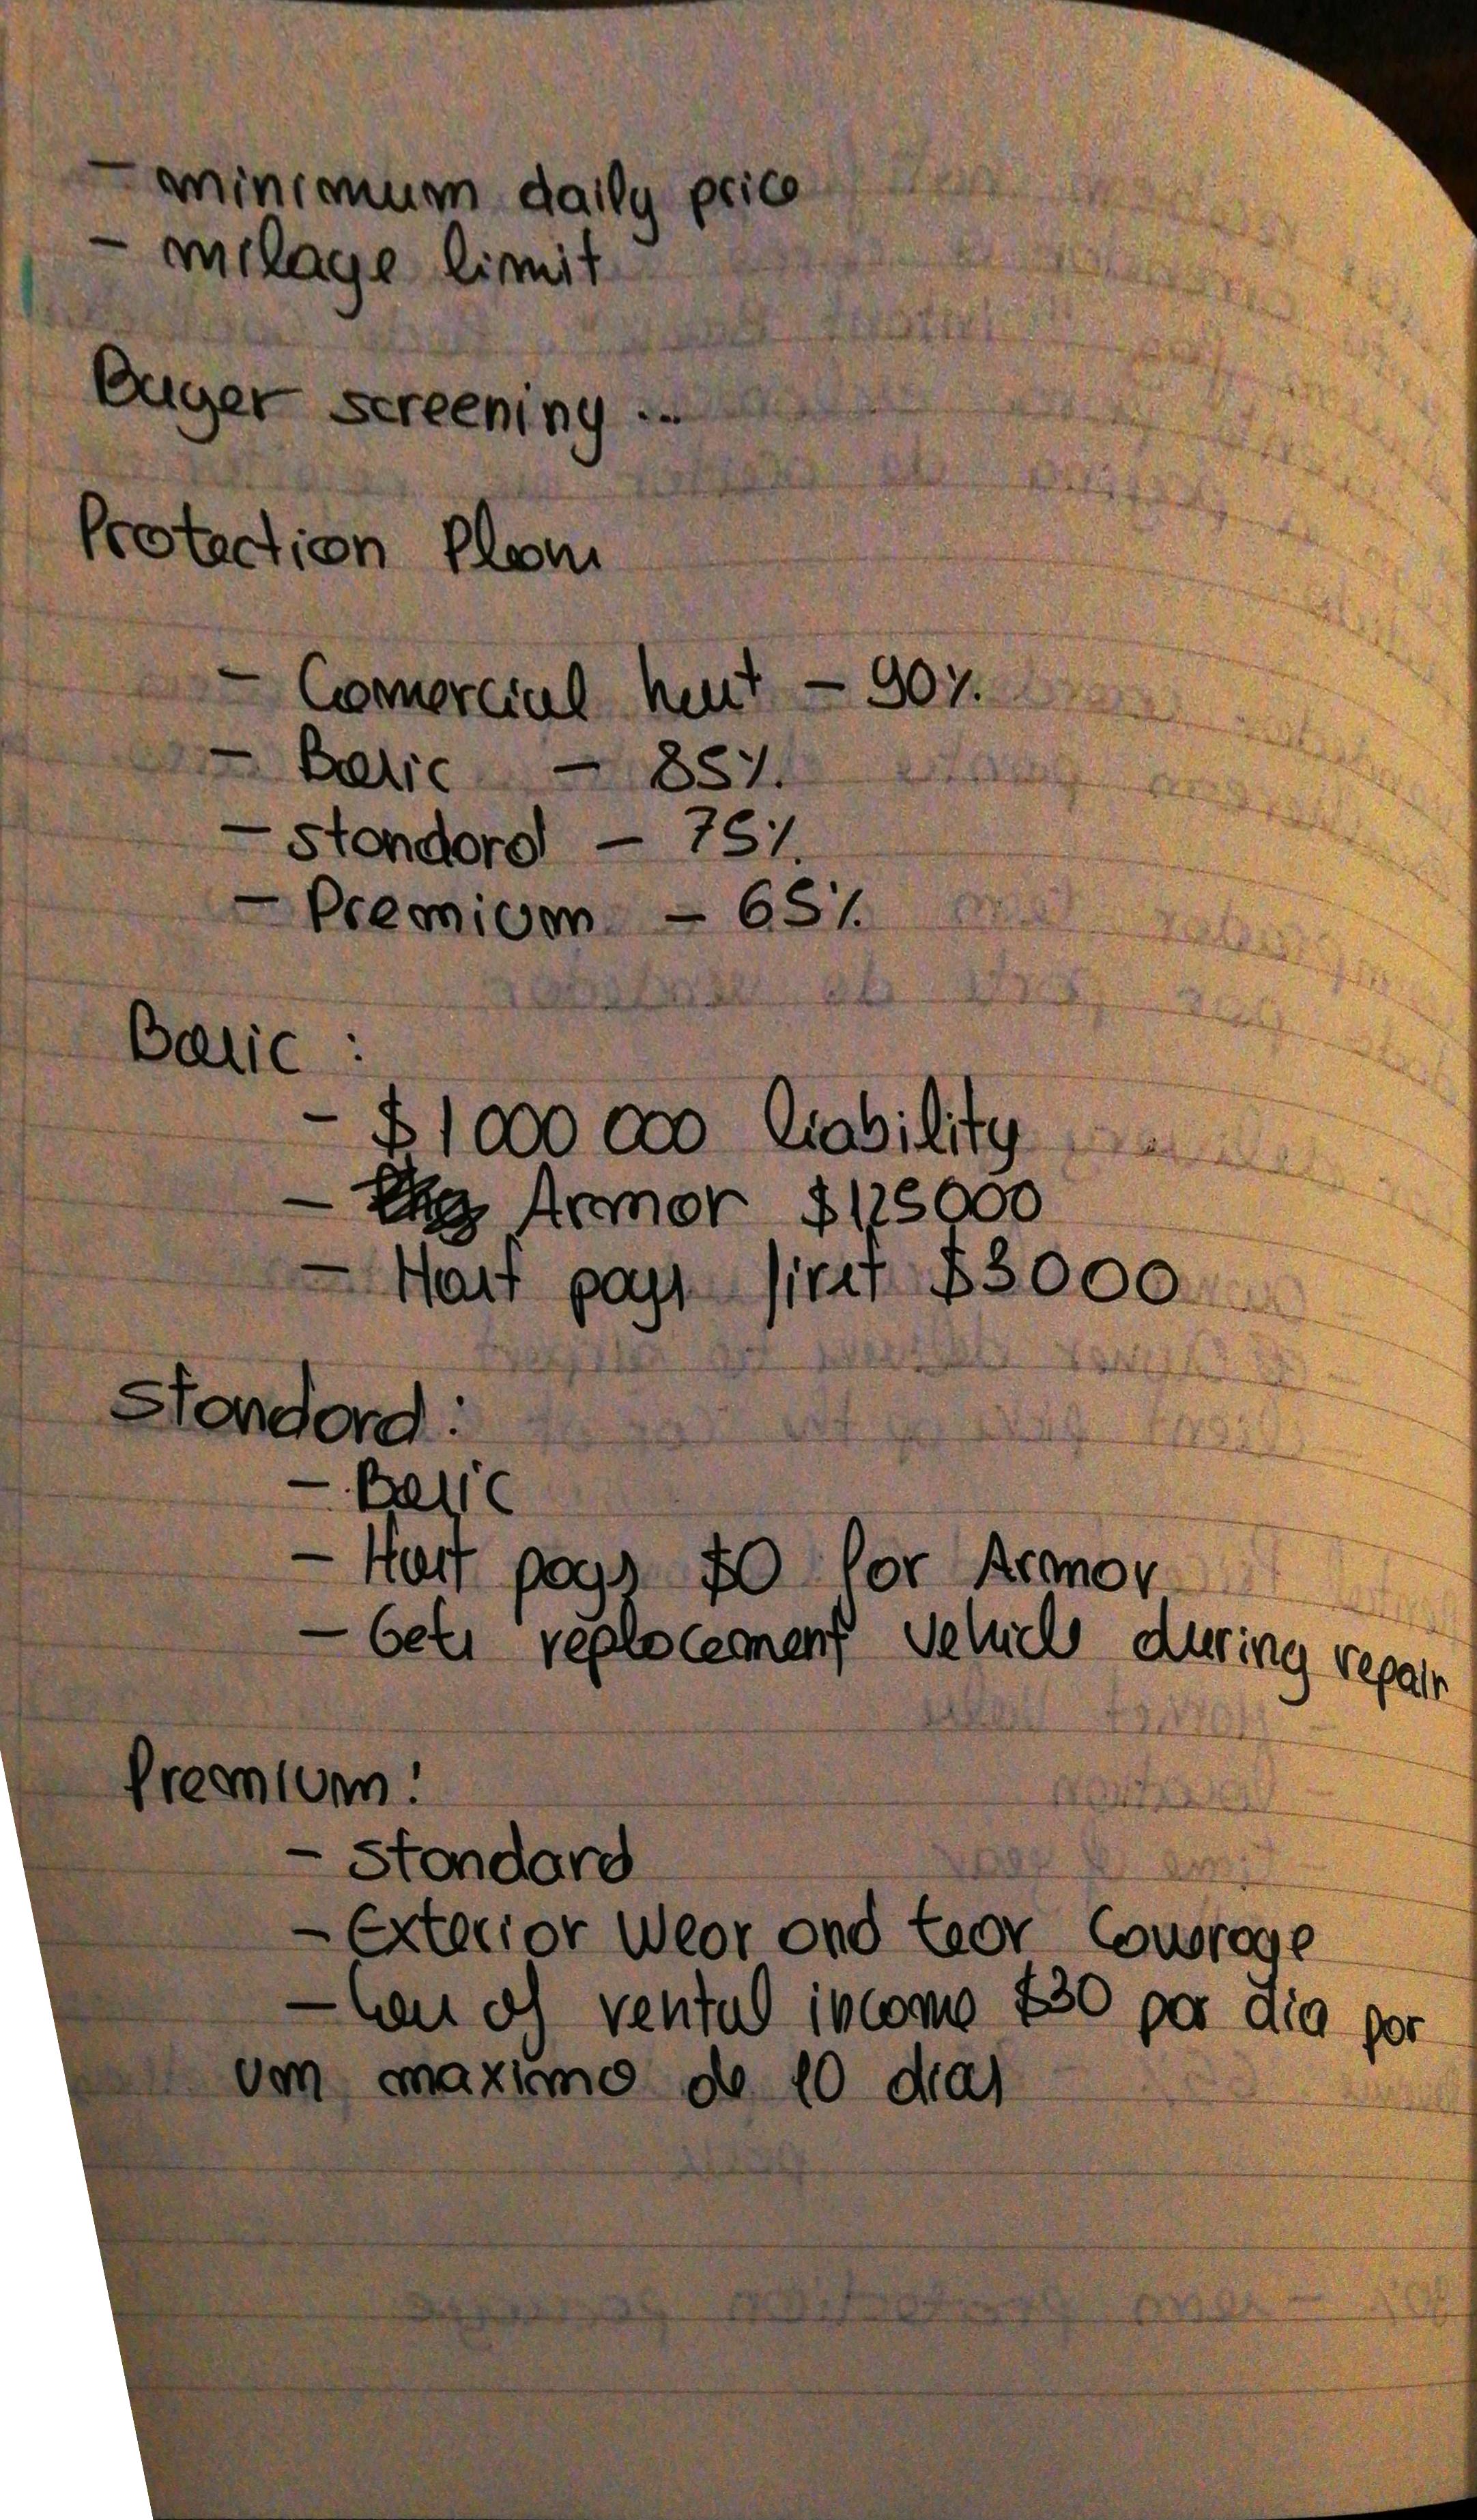 - minimum daily price
- milage limit
Buyer screening ...
Protection Plan
- Comercial host - 90%
- Basic - 85%
- standard - 75%
- Premium - 65%
Basic :
- $1 000 000 liability
- Armor $125000
- Host pays first $3000
Standard :
- Basic
- Host pays $0 for Armor
- Gets replacement vehicle during repair
Premium :
- Standard
- Exterior Wear and tear Coverage
- Loss of rental income $30 por dia por
um maximo de 10 dias